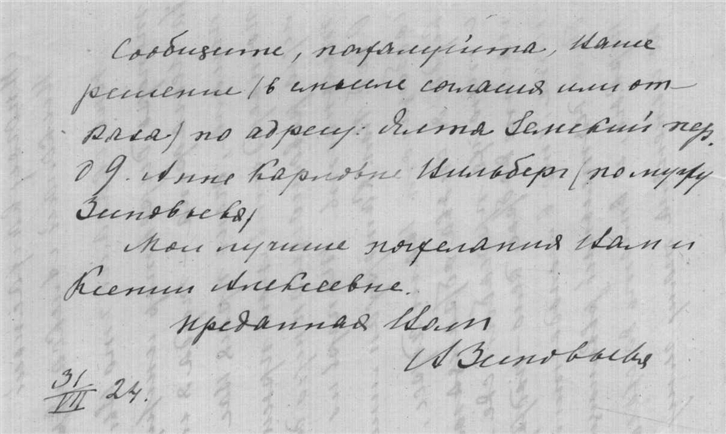 Сообщите, пожалуйста, Ваше
решение (в смысле согласия или от-
каза) по адресу: Ялта Земский пер.
д 9. Анне Карловне Вильберг (по мужу
Зиновьева)
Мои лучшие пожелания Вам и
Ксении Алексеевне.
Преданная Вам
А Зиновьева
31/VII 24.